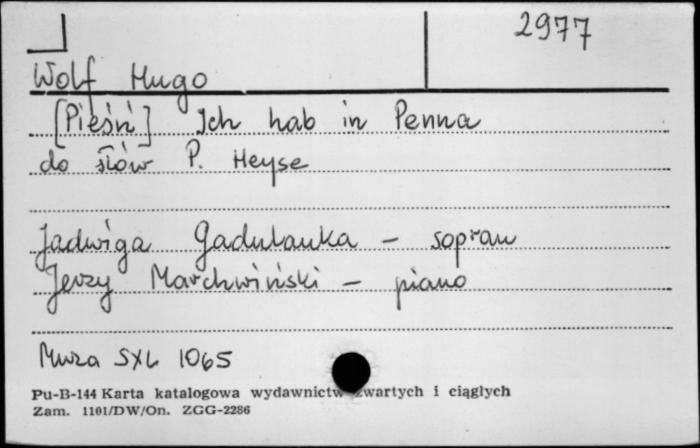 2977
Wolf Hugo
[Pieśń] Ich hab in Penna
do słów P. Heyse
Jadwiga Gadulanka - sopran
Jerzy Marchwiński - piano
Muza SXL 1065
Pu-B-144 Karta katalogowa wydawnictw zwartych i ciągłych
Zam. 1101/DW/On. ZGG-2286